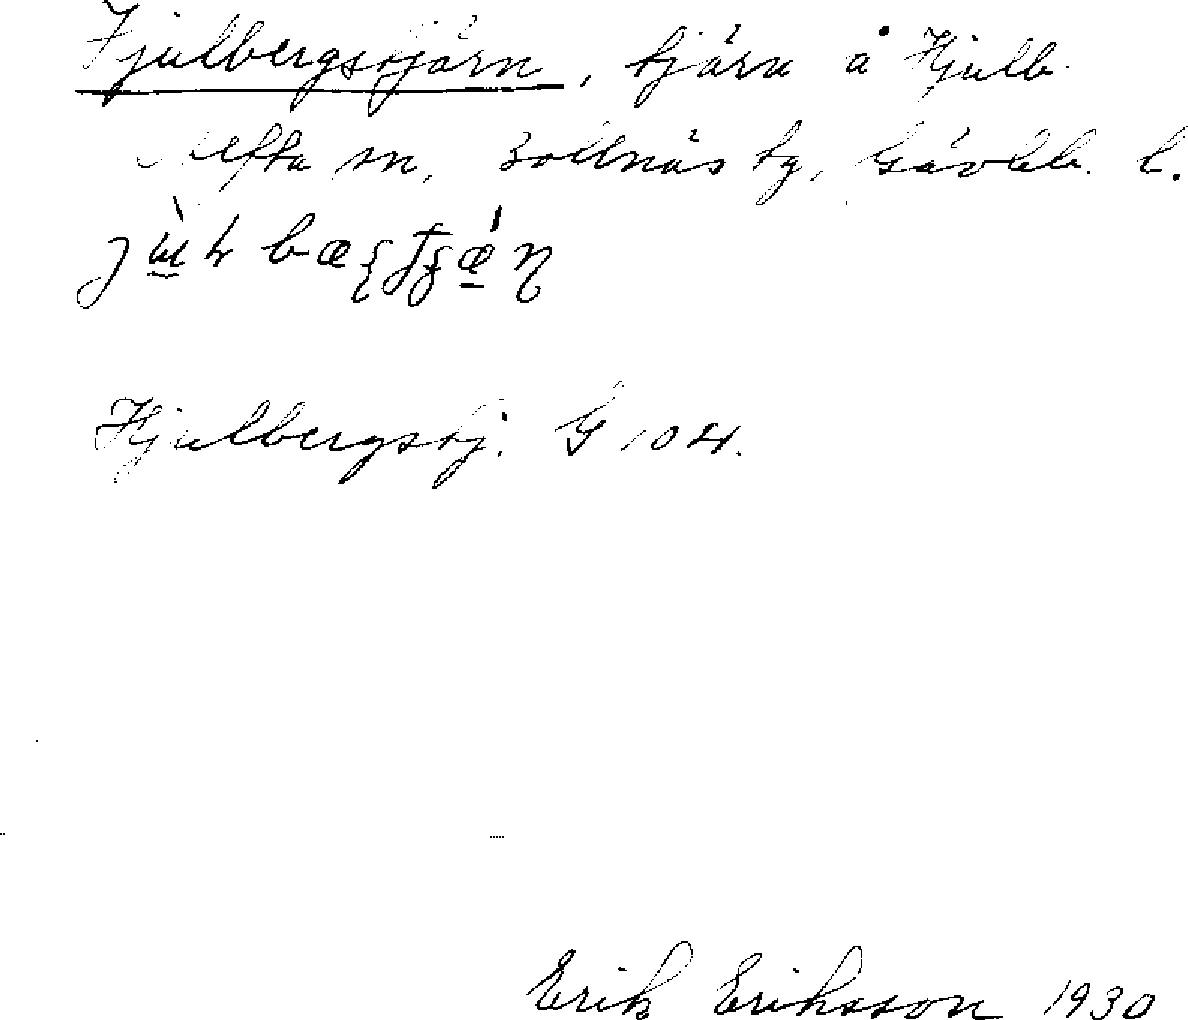 Hjulbergstjärn, tjärn å Hjulb.
Alfta sn, Bollnäs tg, Gävleb. l.
Hjulbergstj. G 104.
Erik Eriksson 1930